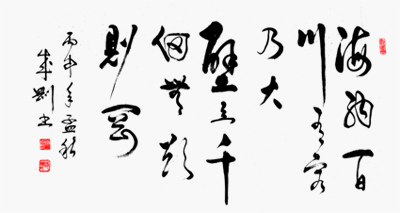 海納百
川有容
乃大
壁立千
仞無欲
則剛
年孟秋
書